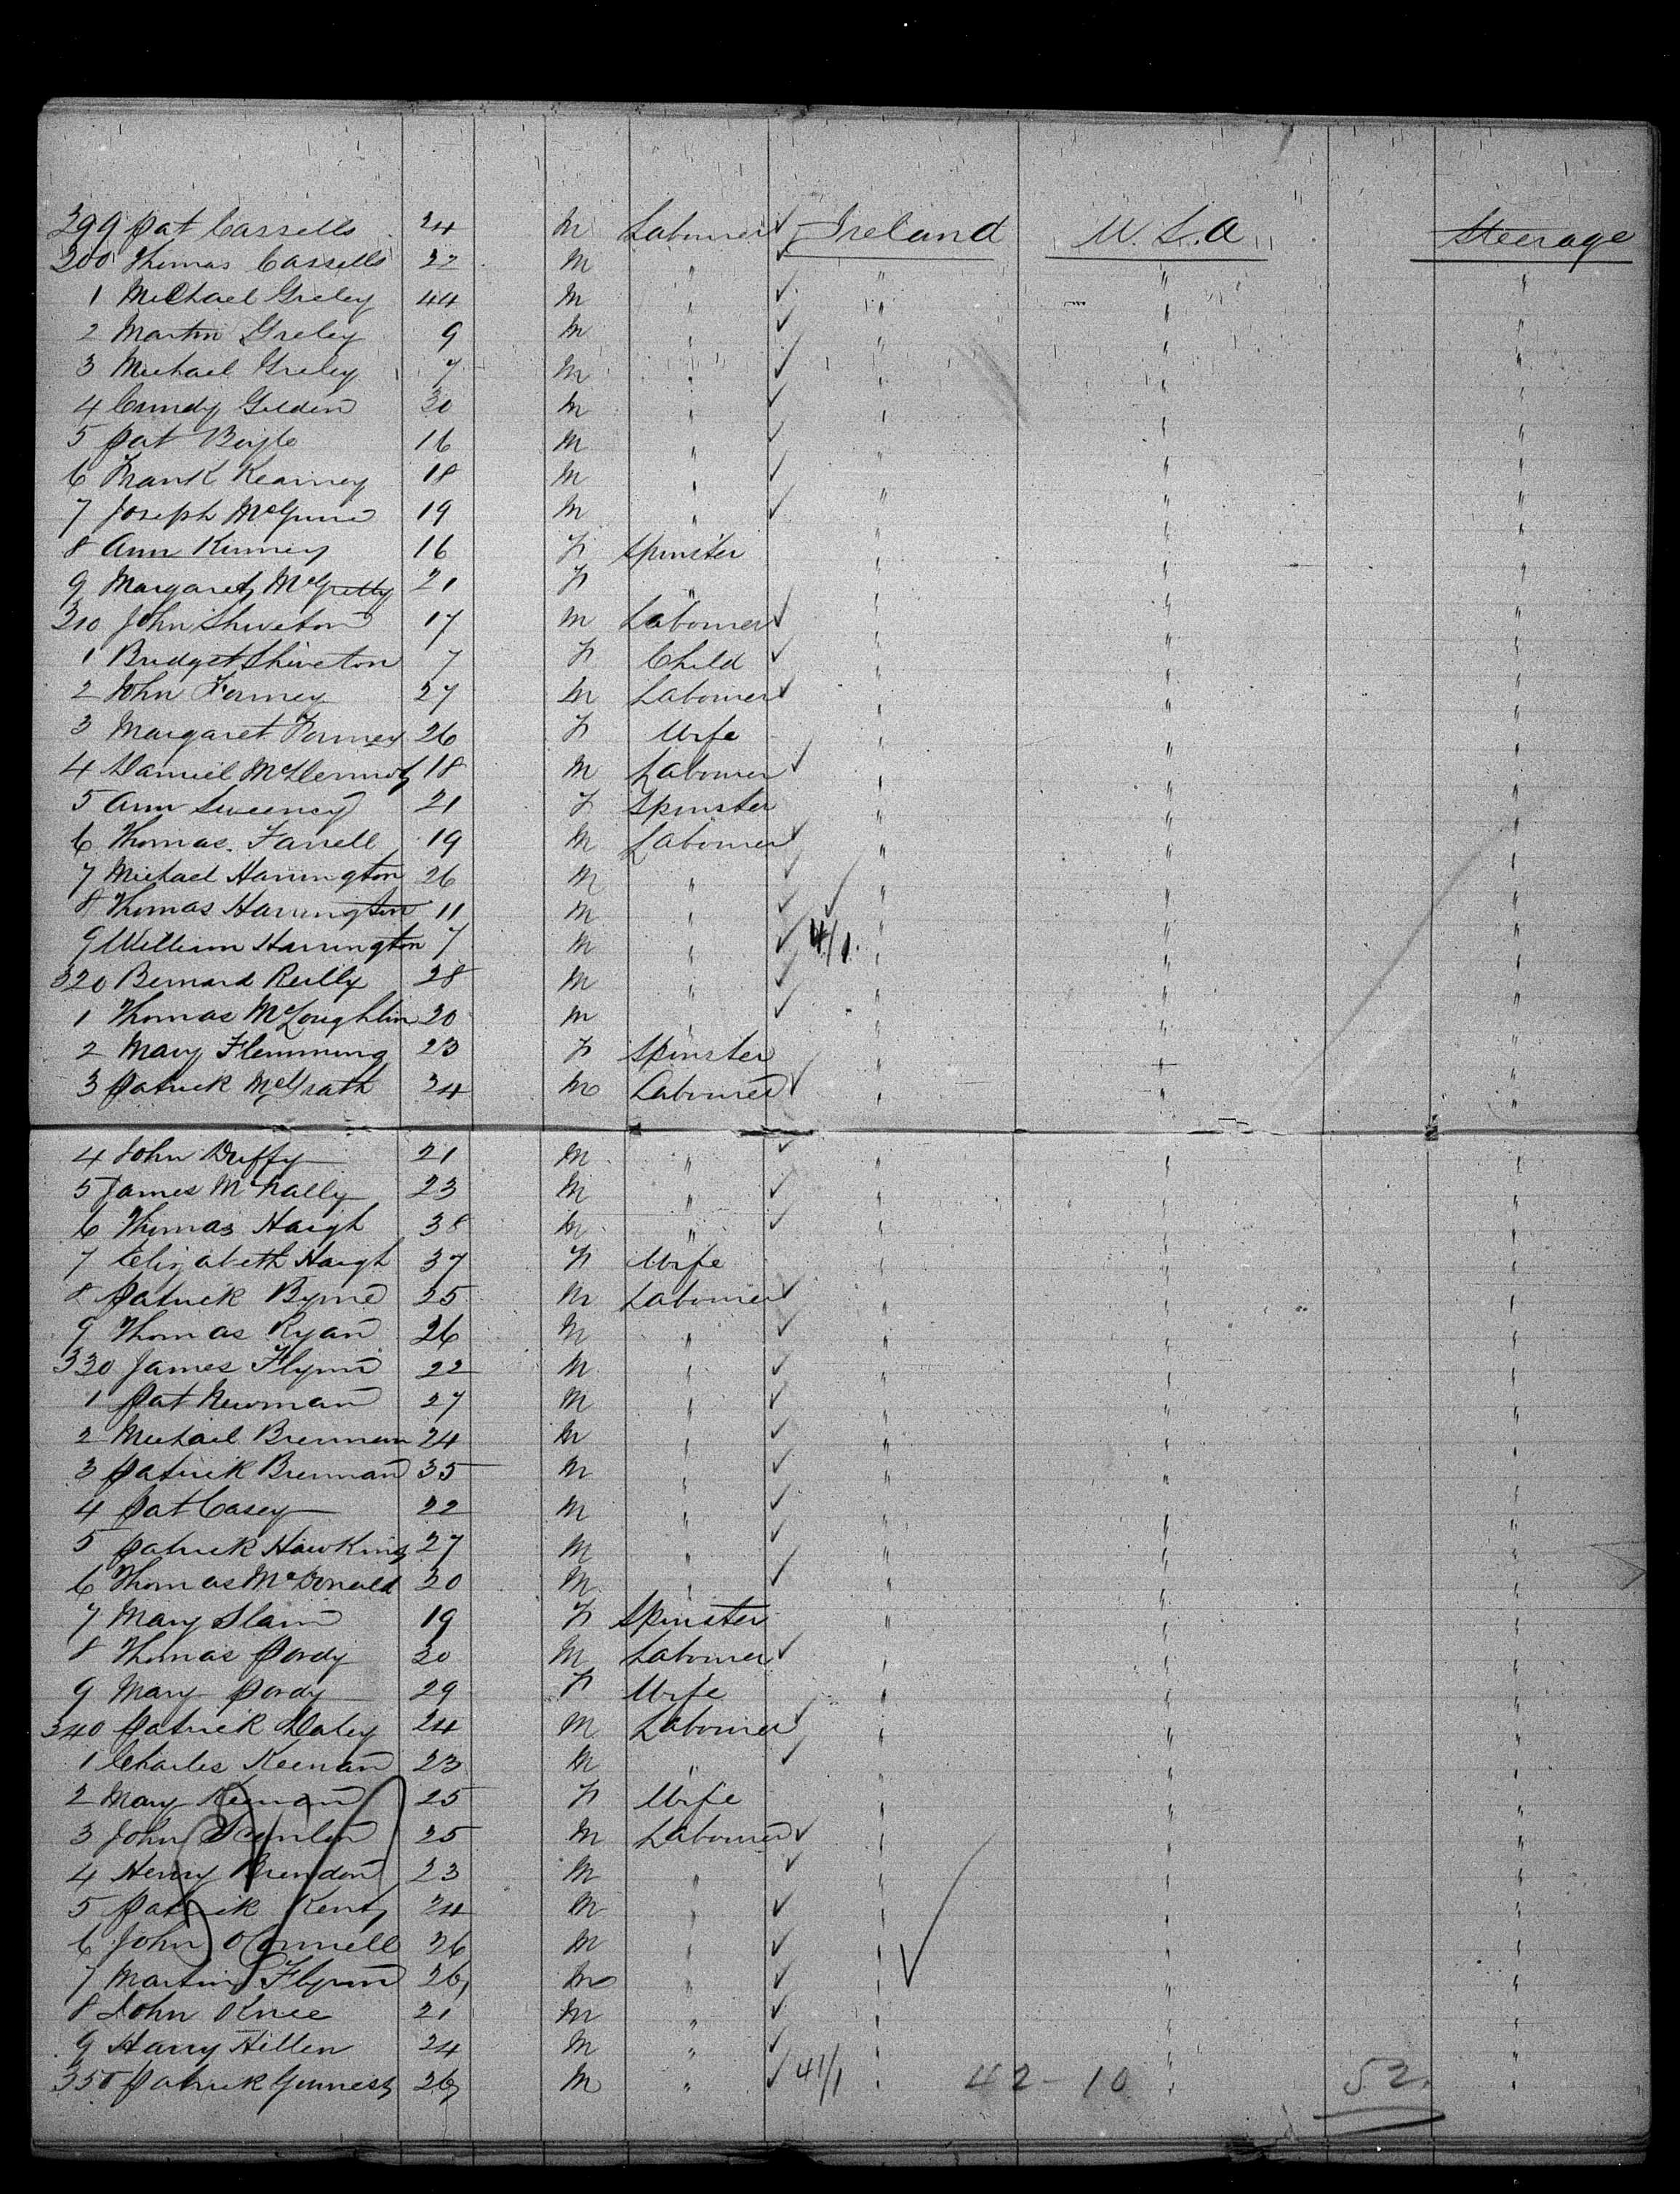 299 Pat Cassells 24 M Labourer ✓ Ireland U.S.A Steerage
300 Thomas Cassells 22 M " ✓ " " "
1 Michael Greley 44 M " ✓ " " "
2 Martin Greley 9 M " ✓ " " "
3 Michael Greley 7 M " ✓ " " "
4 30 M " ✓ " " "
5 Pat Boyle 16 M " ✓ " " "
6 Frank Kearney 18 M " ✓ " " "
7 Joseph McGuire 19 M " ✓ " " "
8 Ann Kinney 16 F Spinster " " "
9 Margaret McGretty 21 F " " " "
310 John Shiveton 17 M Labourer ✓ " " "
1 Bridget Shiveton 7 F Child ✓ " " "
2 John Forney 27 M Labourer ✓ " " "
3 Margaret Forney 26 F Wife " " "
4 Daniel McDermot 18 M Labourer ✓ " " "
5 Ann Sweeney 21 F Spinster " " "
6 Thomas Farrell 19 M Labourer ✓ " " "
7 Michael Harrington 26 M " ✓ " " "
8 Thomas Harrington 11 M " ✓ ✓ " " "
9 William Harrington 7 M " ✓ 4/1 " " "
320 Bernard Reilly 28 M " ✓ " " "
1 Thomas McLoughlin 20 M " ✓ " " "
2 Mary Flemming 23 F Spinster " " "
3 Patrick McGrath 24 M Labourer ✓ " " "
4 John Duffy 21 M " ✓ " " "
5 James McNally 23 M " ✓ " " "
6 Thomas Haigh 38 M " ✓ " " "
7 Elizabeth Haigh 37 F Wife " " "
8 Patrick Byrne 25 M Labourer ✓ " " "
9 Thomas Ryan 26 M " ✓ " " "
330 James Flynn 22 M " ✓ " " "
1 Pat Newman 27 M " ✓ " " "
2 Michael Brennan 24 M " ✓ " " "
3 Patrick Brennan 35 M " ✓ " " "
4 Pat Casey 22 M " ✓ " " "
5 Patrick Hawkins 27 M " ✓ " " "
6 Thomas McDonald 20 M " ✓ " " "
7 Mary Slain 19 F Spinster " " "
8 Thomas Pordy 30 M Labourer ✓ " " "
9 Mary Pordy 29 F Wife " " "
340 Patrick Daley 24 M Labourer ✓ " " "
1 Charles Keenan 23 M " ✓ " " "
2 Mary Keenan 25 F Wife " " "
3 John Scanlon 25 M Labourer ✓ " " "
4 Henry Brendon 23 M " ✓ " " "
5 Patrick Kent 24 M " ✓ " " "
6 John OConnell 26 M " ✓ " " "
7 Martin Flynn 26 M " ✓ " " "
8 John Knee 21 M " ✓ " " "
9 Harry Hillen 24 M " ✓ " " "
350 Patrick Guiness 26 M " ✓ 41/1 " 42-10 " 52. "